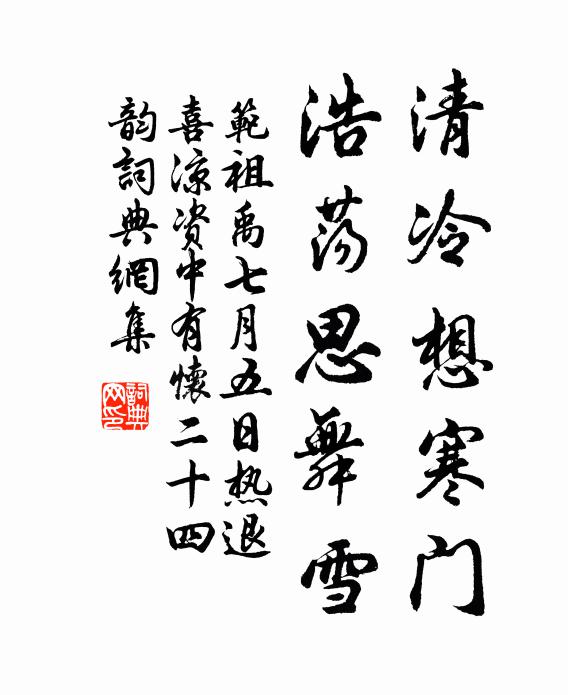 清冷想寒门
浩荡思舞雪
範祖禹七月五日热退
喜涼资中有懷二十四
韵詞典網集
詞典
网印